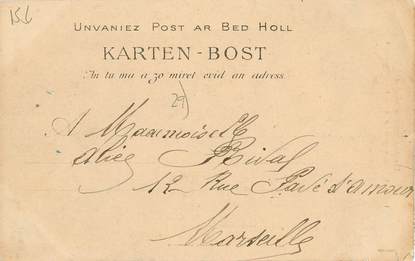 156
UNVANIEZ POST AR BED HOLL
KARTEN-BOST
An tu ma a zo miret evid an adress
29
A Mademoiselle
Alice Rival
12 Rue Pavé d'amour
Marseille